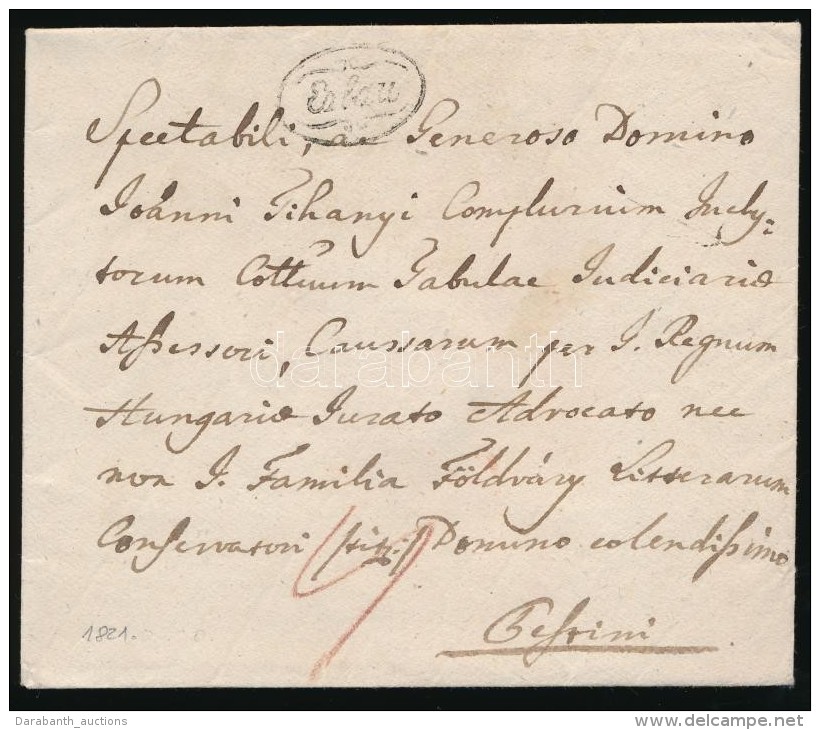 Erlau
Spectabili, ac Generoso Domino
Joanni Tihanyi Complurium Incly-
torum Cottuum Tabulae Judiciariæ
Assessori, Caussarum per I. Regnum
Hungariæ Jurato Advocato nec
non I. Familia Földváry Litterarum
Conservatori /titt:/ Domino colendissimo
Pestini
1821.
darabanth
Darabanth_auctions
www.delcampe.net